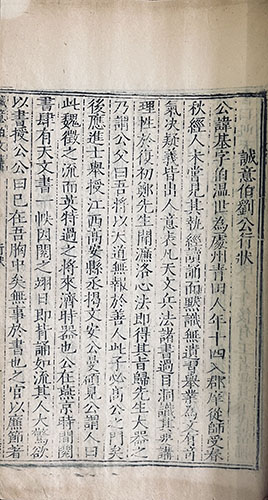 誠意伯劉公行狀
公諱基字伯溫世為處州青田人年十四入郡庠從師受春
秋經人未嘗見其執經誦而默識無遺習舉業為文有奇
氣決疑義皆出人意表凡天文兵法諸書過目洞識其要講
理性於復初鄭先生聞濂洛心法即得其旨歸先生大器之
乃謂公父曰吾將以天道無報於善人此子必高公之門矣
後應進士舉授江西高安縣丞揭文安公曼碩見公謂人曰
此魏徵之流而英特過之將來濟時器也公在燕京時間閱
書肆有天文書一帙因閱之翌日即背誦如流其人大驚欲
以書授公公曰已在吾胸中矣無事於書也之官以廉節著
行狀